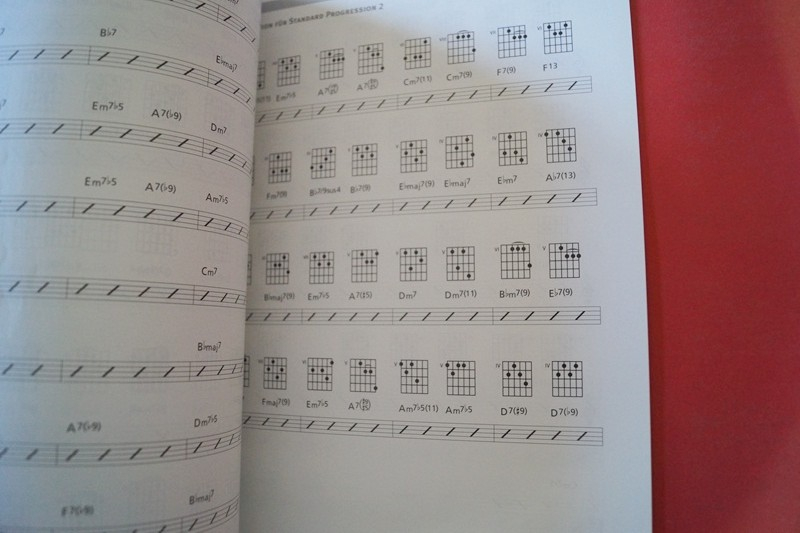 B♭7
E♭maj7
Em7♭5 A7(♭9) Dm7
Em7♭5 A7(♭9) Am7♭5
Cm7
B♭maj7
A7(♭9) Dm7♭5
F7(♭9) B♭maj7
ion für Standard Progression 2
Em7♭5 A7 A7 Cm7(11) Cm7(9) F7(9) F13
Fm7(9) B♭7/9sus4 B♭7(9) E♭maj7(9) E♭maj7 E♭m7 A♭7(13)
B♭maj7(9) Em7♭5 A7(♯5) Dm7 Dm7(11) B♭m7(9) E♭7(9)
Fmaj7(9) Em7♭5 A7 Am7♭5(11) Am7♭5 D7(♯9) D7(♭9)